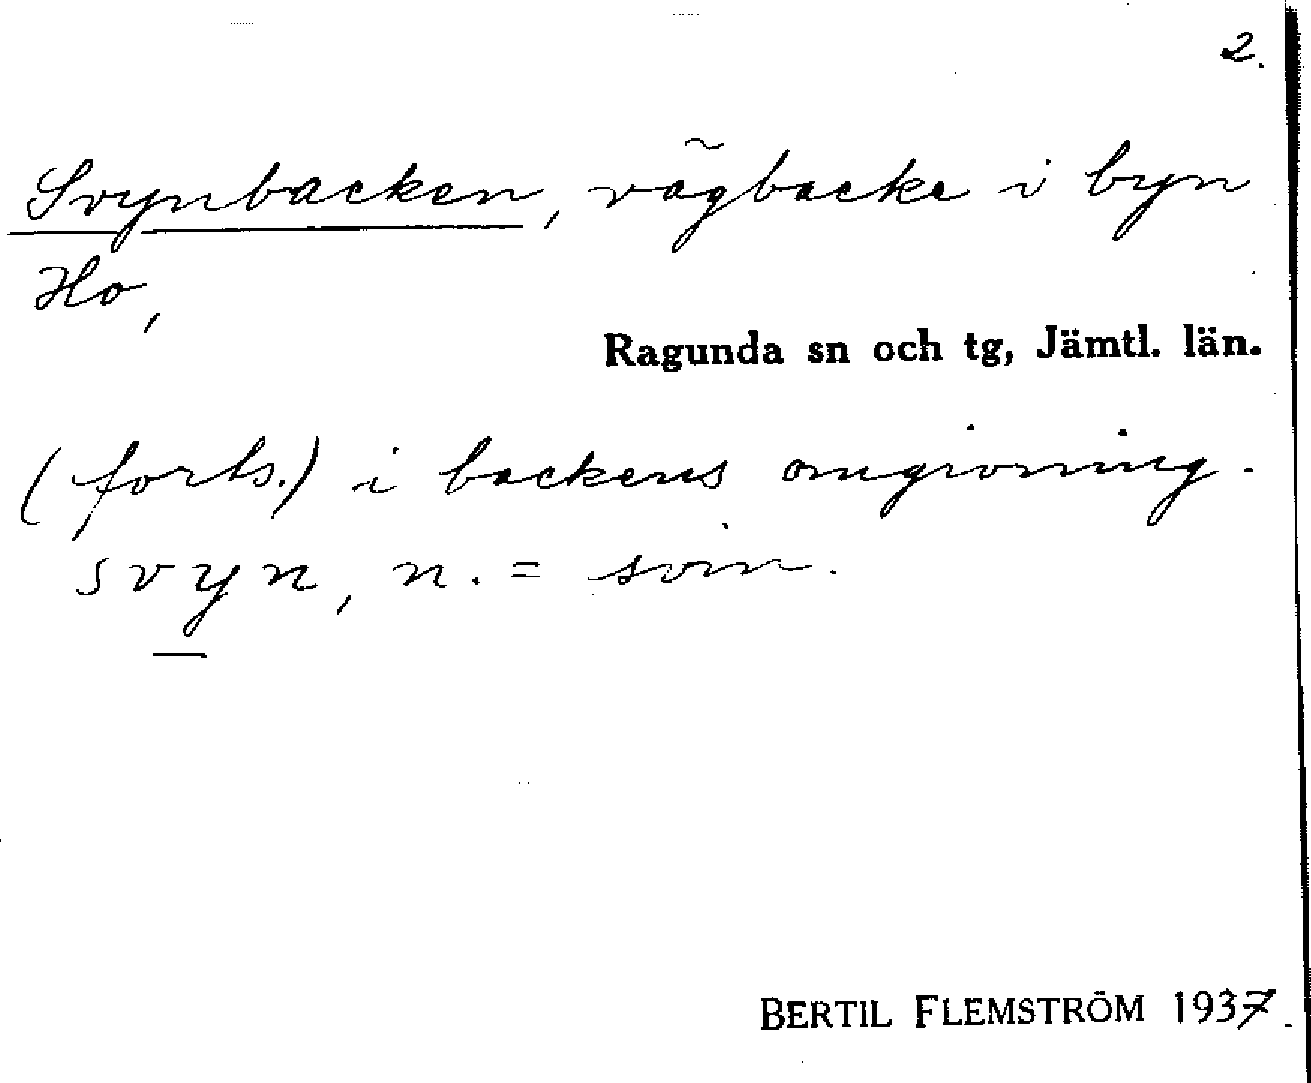 2.
Svynbacken, vägbacke i byn
Ho,
Ragunda sn och tg, Jämtl. län.
(forts.) i backens omgivning.
svyn, n. = svin.
BERTIL FLEMSTRÖM 1937.